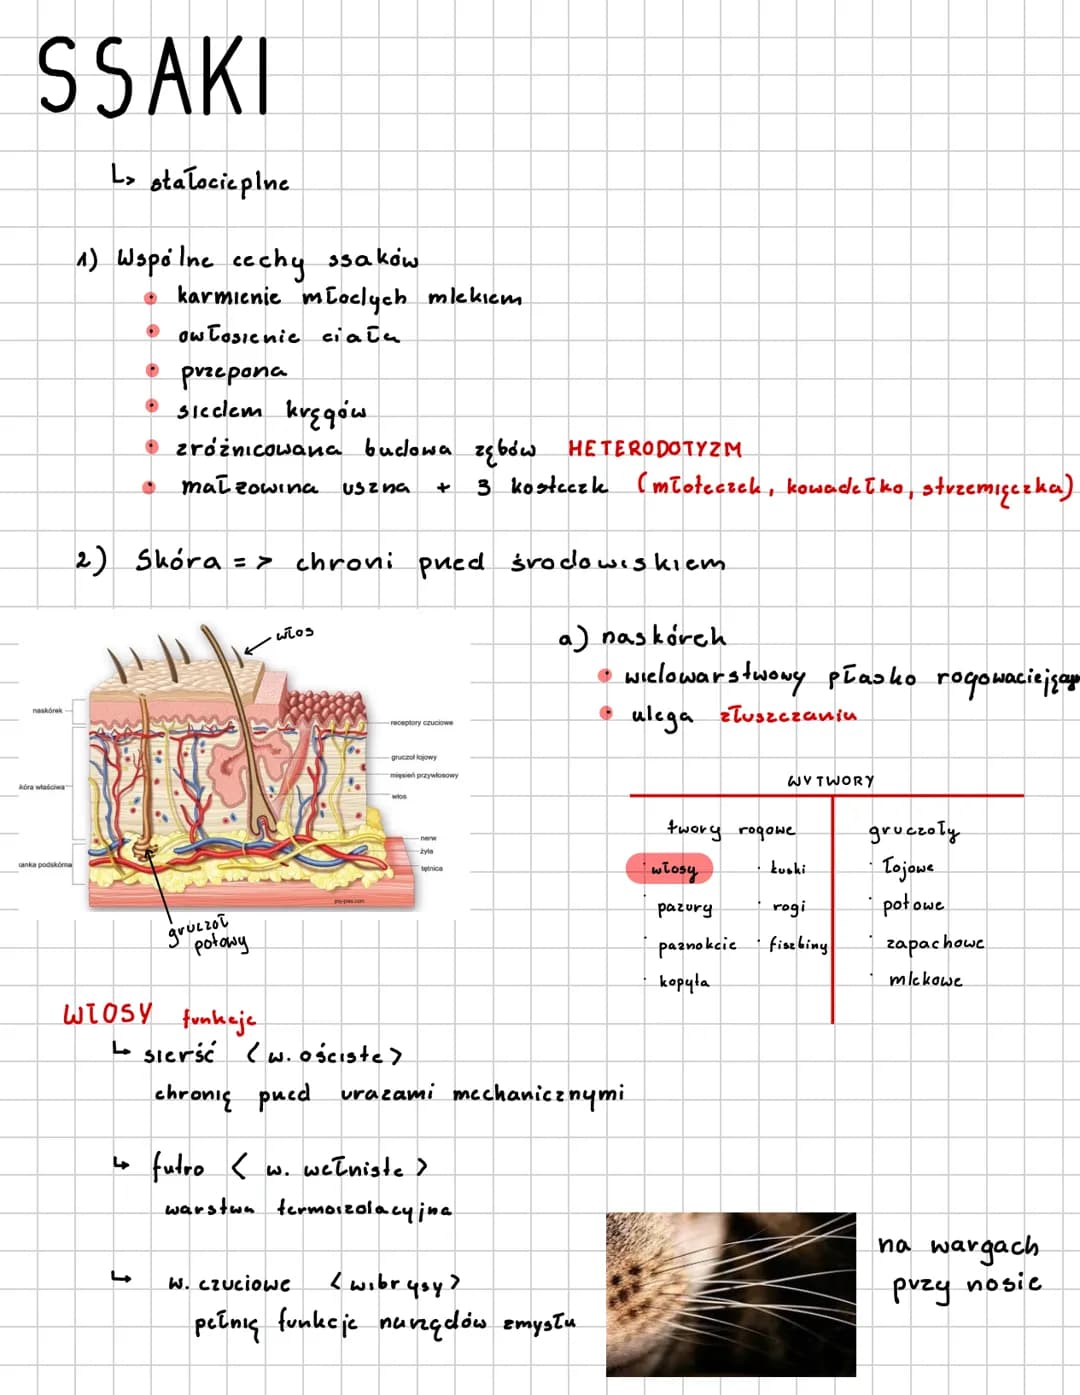 SSAKI
↳ stałocieplne
1) Wspólne cechy ssaków
• karmienie młodych mlekiem
• owłosienie ciała
• przepona
• siedem kręgów
• zróżnicowana budowa zębów HETERODOTYZM
• małżowina uszna + 3 kosteczk (młoteczek, kowadełko, strzemiączka)
2) Skóra => chroni przed środowiskiem
włos
naskórek
receptory czuciowe
gruczoł łojowy
mięsień przywłosowy
włos
kóra właściwa
nerw
żyła
tętnica
anka podskórna
gruczoł potowy
a) naskórek
• wielowarstwowy płasko rogowaciejący
• ulega złuszczaniu
WYTWORY
twory rogowe
gruczoły
· włosy · łuski · łojowe
· pazury · rogi · potowe
· paznokcie · fiszbiny · zapachowe
· kopyta · mlekowe
WŁOSY funkcje
↳ sierść < w. ościste >
chronią przed urazami mechanicznymi
↳ futro < w. wełniste >
warstwa termoizolacyjna
↳ w. czuciowe < wibrysy >
pełnią funkcje narządów zmysłu
na wargach
przy nosie